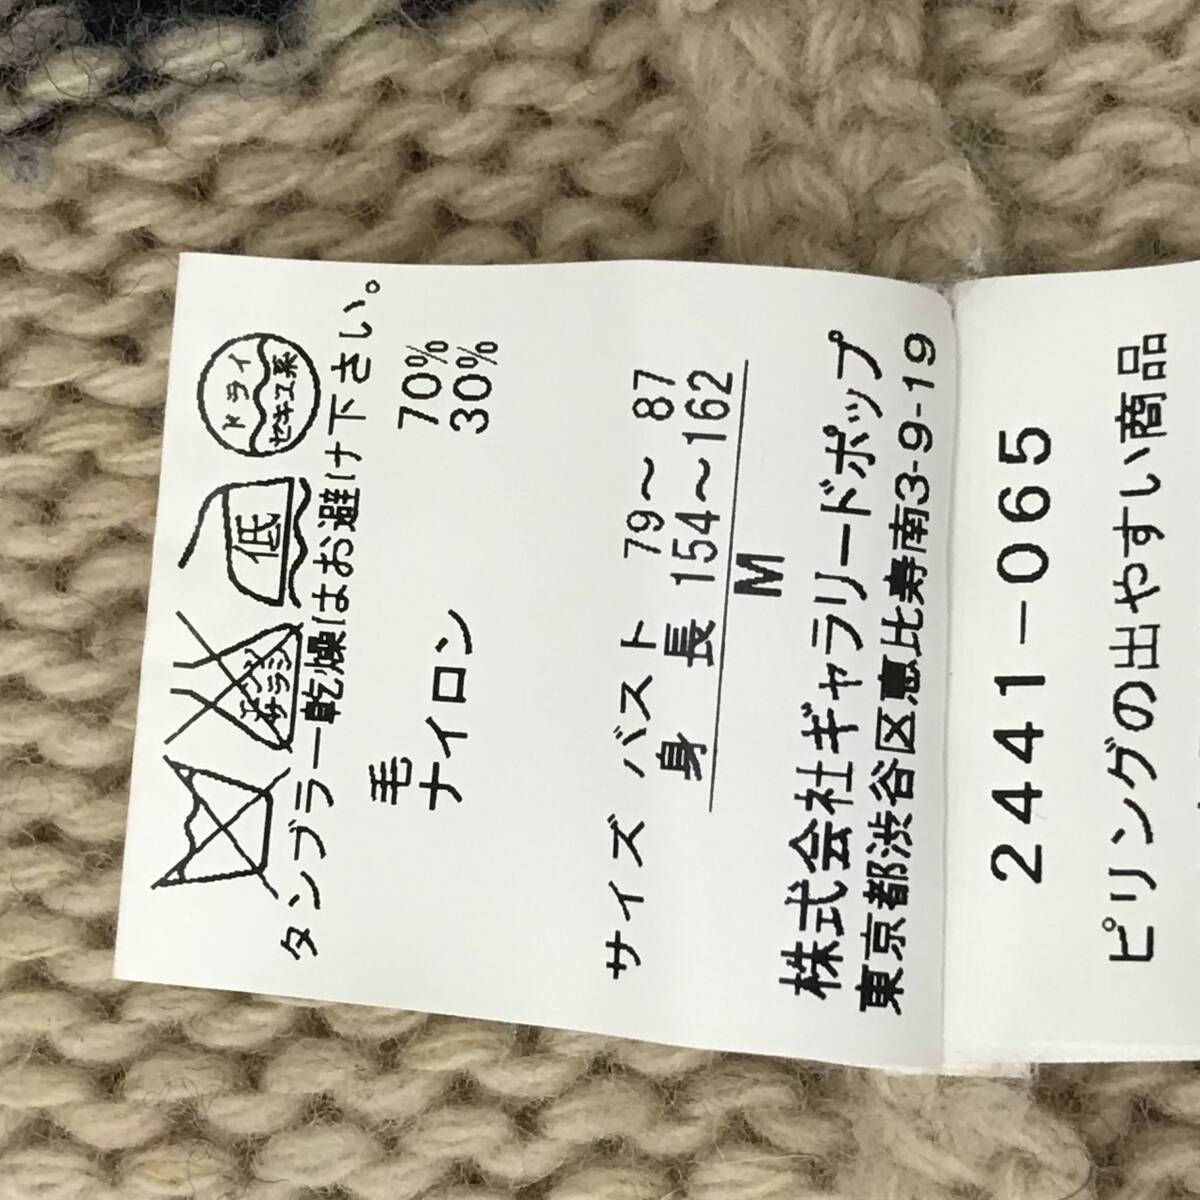 低
ドライ
セキユ系
タンブラー乾燥はお避け下さい。
毛 70%
ナイロン 30%
サイズ バスト 79〜 87
身 長 154〜162
M
株式会社ギャラリードポップ
東京都渋谷区恵比寿南3-9-19
2441-065
ピリングの出やすい商品